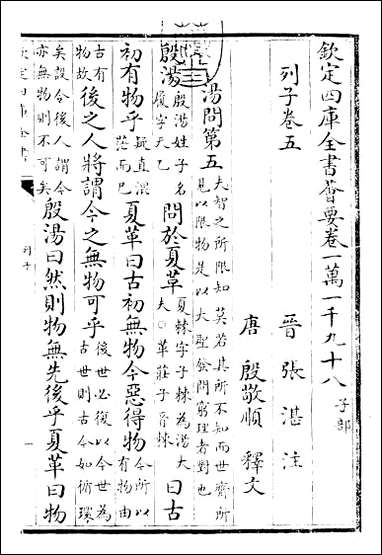 欽定四庫全書薈要卷一萬一千九十八 子部
列子卷五
晉 張湛 注
唐 殷敬順 釋文
湯問第五 夫智之所限知莫若其所不知而世齊所
見以限物是以大聖發問窮理者對也
殷湯 殷湯姓子名
履字天乙
問於夏革 夏棘字子棘為湯大
夫○革莊子音棘
曰古
初有物乎 疑直混
茫而已
夏革曰古初無物今惡得物 今所以
有物由
古有
物故
後之人將謂今之無物可乎 後世必復以今世為
古世則古今如循環
矣設令後人謂今
亦無物則不可矣
殷湯曰然則物無先後乎夏革曰物
欽定四庫全書
列子
一